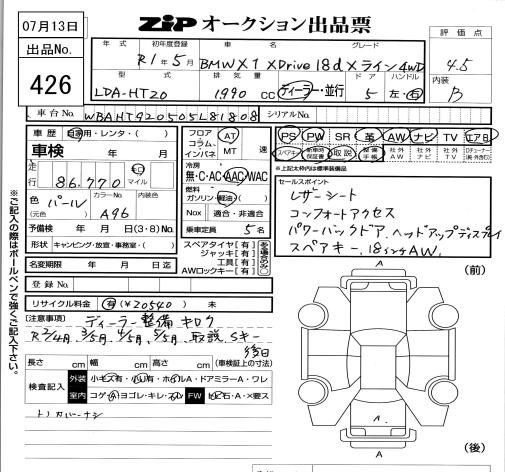 07月13日
ZIP オークション出品票
出品No.
426
評価点
4.5
内装
B
年式 初年度登録 車名 グレード
R1年5月 BMW X1 XDrive 18d Xライン 4WD
型式 排気量 ドア ハンドル
LDA-HT20 1990 CC ディーラー・並行 5 左・右
車台No. WBAHT920505L81808 シリアルNo.
車歴 自家用・レンタ( ) フロア コラム インパネ AT MT 速
PS PW SR 革 AW ナビ TV エアB
車検 年 月
冷房 無・C・AC・AAC・WAC
スペアキー 新車時保証書 取説 整備手帳 社外AW 社外ナビ 社外TV
※上記太枠内は標準装備品
走行 86,770 キロ マイル
燃料 ガソリン・軽油( )
色 パール カラーNo. A96 内装色
(元色)
Nox 適合・非適合
予備検 年 月 日(3・8)No.
乗車定員 5名
形状 キャンピング・放宣・事務室・( )
スペアタイヤ[有]
ジャッキ[有]
工具[有]
AWロックキー[有]
名変期限 年 月 日迄
セールスポイント
レザーシート
コンフォートアクセス
パワーバックドア、ヘッドアップディスプレイ
スペアキー、18インチAW、
登録No.
リサイクル料金 有(¥20540) 未
(注意事項) ディーラー整備キロク
R2/4月、3/5月、4/5月、5/5月、取説、Sキー
後日
長さ cm 幅 cm 高さ cm (車検証上の寸法)
検査記入 外装 小キズ有・小凹有・ホイルA・ドアミラーA・ワレ
室内 コゲ・A・ヨゴレ・キレ・スレ FW 飛石・A・×要ス
トノカバーナシ
※ご記入の際はボールペンで強くご記入下さい。
(前)
A
A
A
A
(後)